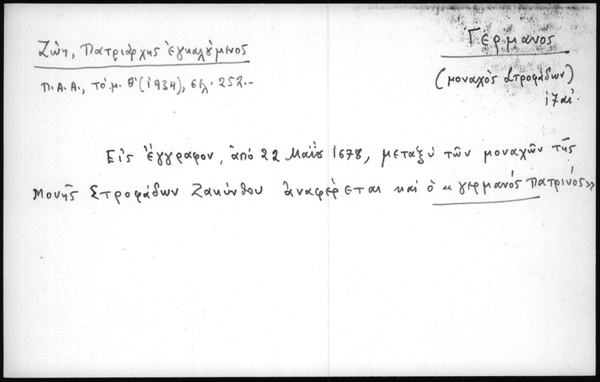 Ζώη, Πατριάρχης ἐγκαλούμενος
Γερμανος
Π.Α.Α., τόμ. Θ' (1934), σελ. 252.-
(μοναχὸς Στροφάδων)
17 αἰ.
Εἰς ἔγγραφον, ἀπό 22 Μαΐου 1678, μεταξύ τῶν μοναχῶν τῆς
Μονῆς Στροφάδων Ζακύνθου ἀναφέρεται καί ὁ «Γερμανός Πατρινός»